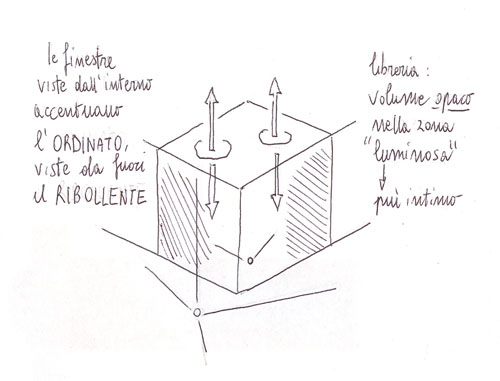 le finestre
viste dall'interno
accentuano
l'ORDINATO,
viste da fuori
il RIBOLLENTE
libreria:
volume opaco
nella zona
"luminosa"
più intimo